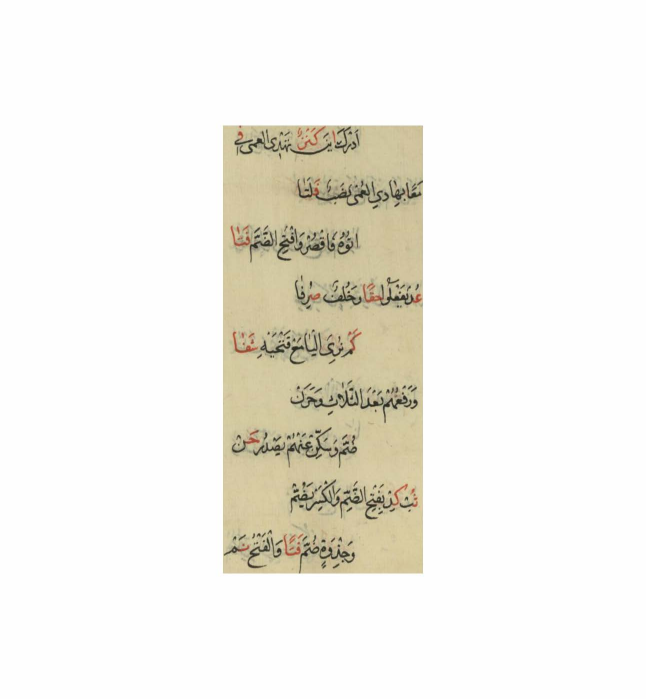 اَدْرَكَ اَيْنَ كَنْزٌ تَهْدِى العمى فى
مَعًا بِهَادِي الْعُمْيِ نصبُ فَلَتَا
اتوُهُ فَاقْصُرْ وَافْتَحِ الضَّمَّ فَتَا
عُدْ يَفْعَلُوا حقًا وَخُلْفُ صُرِفَا
كَمْ نرِىَ الْيَا مَعْ فَتْحَيْهِ شَفَا
وَرَفْعُهُمْ بَعْدَ الثَّلَاثِ وَحَزَنْ
ضُمَّ وَسَكِّنْ عَنْهُمُ يَصْدُرَ حَنْ
ثُبْ كُدْ بِفَتْحِ الضَّمِّ وَالْكَسْرُ يُضَمْ
وَجِذْوَةٍ ضُمَّ فَتًا وَالْفَتْحُ نَمْ